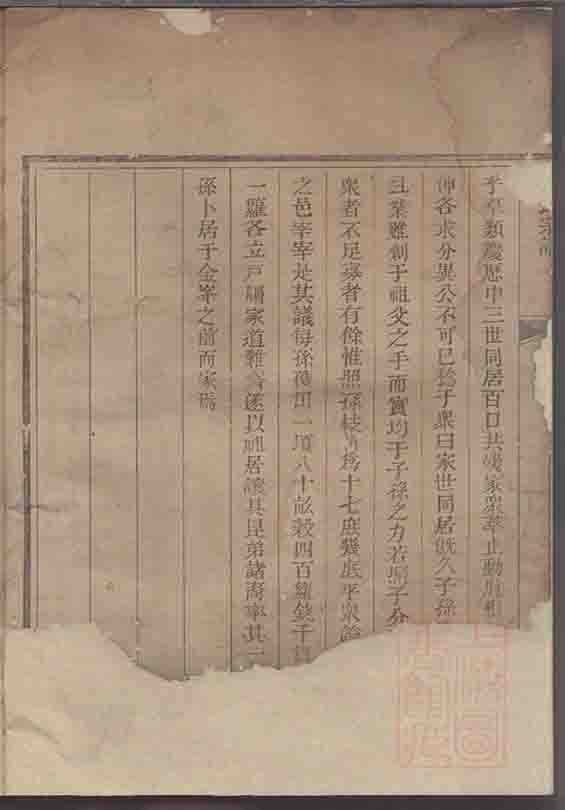 子 類慶歷中三世同居百口共爨家眾萃止動
伸各求分異公不可已諗于眾曰家世同居旣久子孫
且業雖創于祖父之手而實均于子孫之力若照子分
衆者不足寡者有餘惟照孫枝 爲十七庶幾底平衆
之邑宰宰是其議每孫獲田一頃八十畝穀四百籮錢千
一籮各立戶 家道雖 遂以 居讓其昆弟諸裔率其
孫卜居于金峯之前而家焉
上海圖書館藏